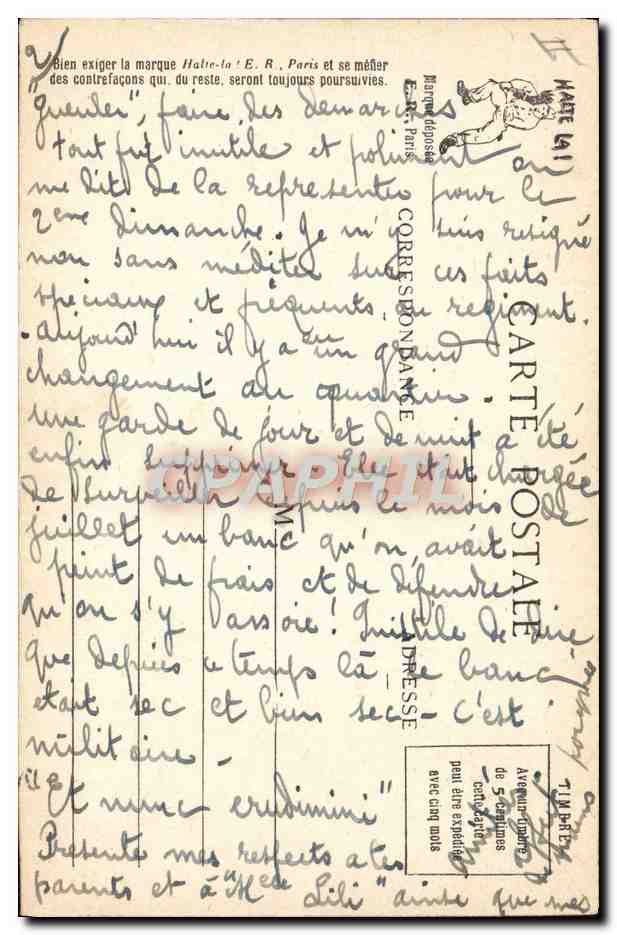 2/ II
Bien exiger la marque Halte-la ! E. R., Paris et se méfier
des contrefaçons qui, du reste, seront toujours poursuivies.
Marque déposée
E. R., Paris
HALTE LA !
"gueuler", faire des demarches
tout fut inutile et poliment on
me dit de la representer pour le
2eme dimanche. Je m'y suis resigné
non sans méditer sur ces faits
speciaux et fréquents, au regiment.
Aujourd'hui il y a eu un grand
changement au quartier.
une garde de jour et de nuit a été
enfin supprimer. Elle etait chargée
de surveiller depuis le mois de
juillet un banc qu'on avait
peint de frais et de défendre
qu'on s'y assoie ! Inutile de dire
que depuis ce temps là le banc
etait sec et bien sec - C'est
militaire -
"Et nunc erudimini"
Presente mes respects a tes
parents et à "Melle Lili" ainsi que mes
CARTE POSTALE
CORRESPONDANCE
ADRESSE
M
TIMBRE
Avec un timbre
de 5 centimes
cette carte
peut être expédiée
avec cinq mots
CPAPHIL